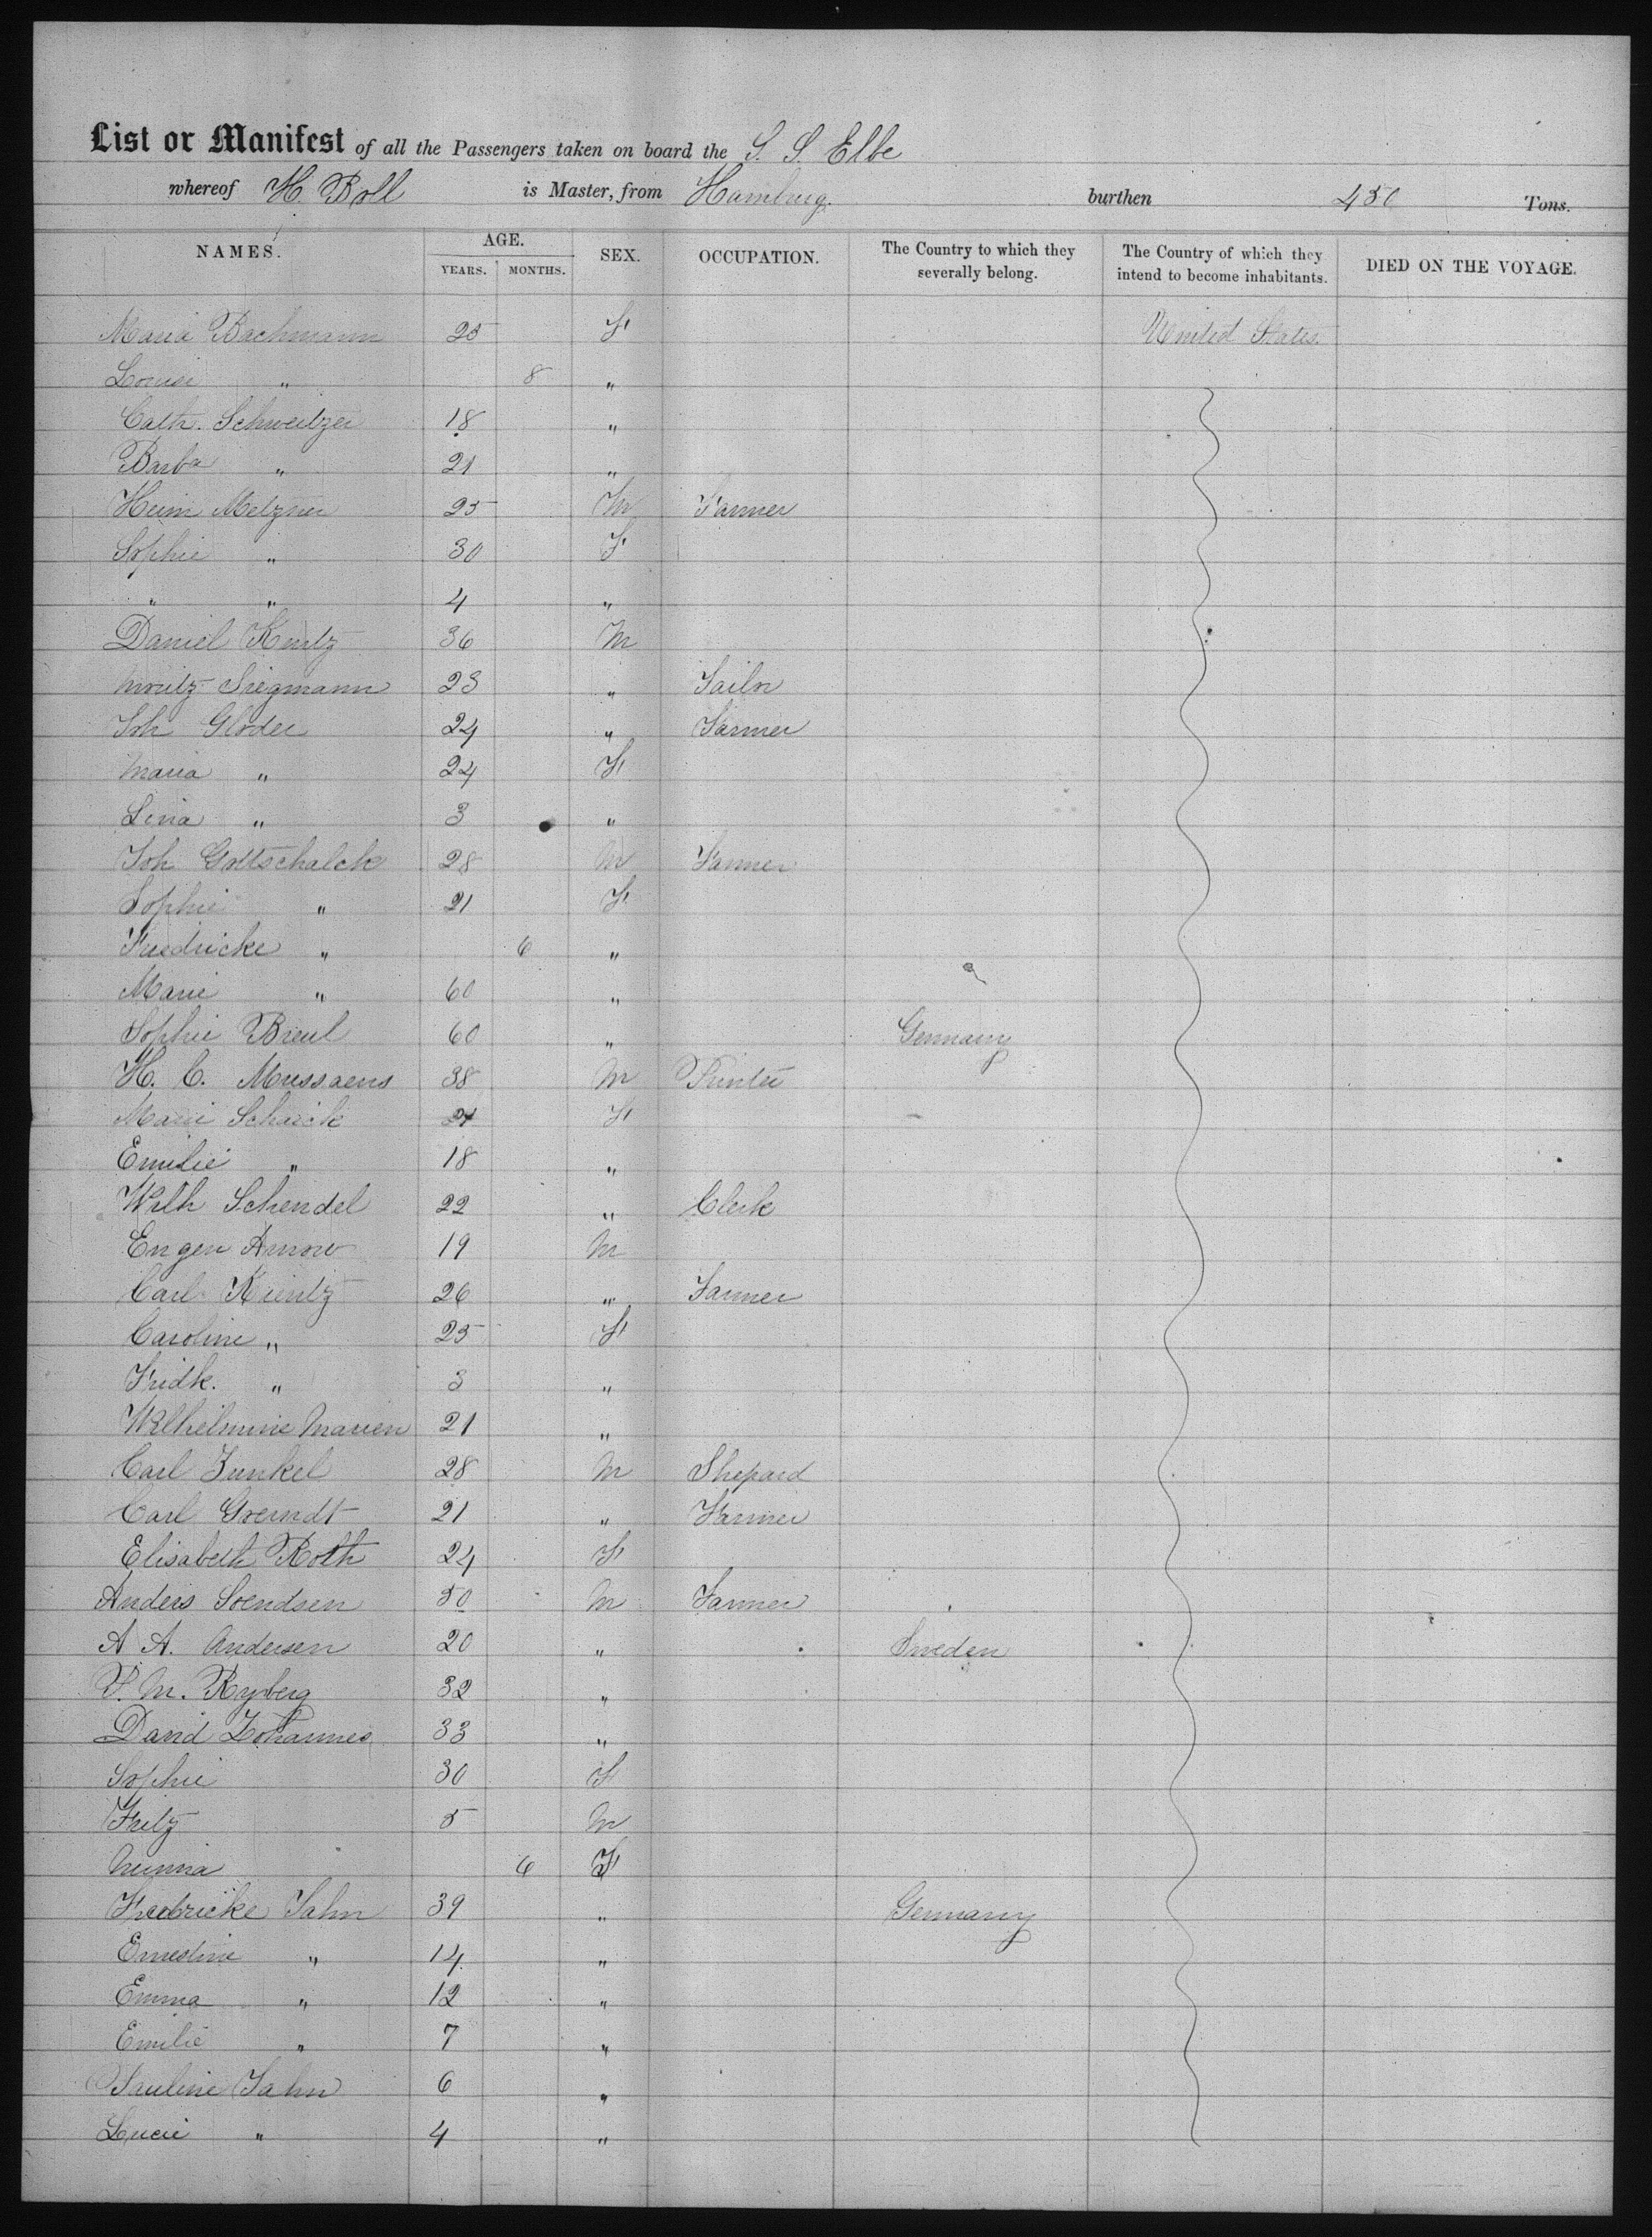 List or Manifest of all the Passengers taken on board the S. S. Elbe
whereof H. Boll is Master, from Hamburg. burthen 450 Tons.
NAMES. AGE. YEARS. MONTHS. SEX. OCCUPATION. The Country to which they severally belong. The Country of which they intend to become inhabitants. DIED ON THE VOYAGE.
Maria Bachmann 25 F United States.
Louise " 8 "
Cath. Schweitzer 18 "
Barba " 21 "
Heinr Metzner 25 M Farmer
Sophie " 30 F
" " 4 "
Daniel Kuntz 36 M
Moritz Siegmann 23 " Tailor
Joh Gloder 24 " Farmer
Maria " 24 F
Lina " 3 "
Joh Gottschalck 28 M Farmer
Sophie " 21 F
Friedricke " 6 "
Marie " 60 "
Sophie Breul 60 " Germany
H. C. Mussaeus 38 M Printer
Marie Scharck 24 F
Emilie " 18 "
Wilh Schendel 22 " Clerk
Eugen Arnow 19 M
Carl Kuntz 26 " Farmer
Caroline " 25 F
Fridk. " 3 "
Wilhelmine Marien 21 "
Carl Zunkel 28 M Shepard
Carl Goerndt 21 " Farmer
Elisabeth Roth 24 F
Anders Soendsen 50 M Farmer
A A. Andersen 20 " Sweden
P. M. Ryberg 32 "
David Johannes 33 "
Sophie 30 F
Fritz 5 M
Minna 6 F
Friedricke Jahn 39 " Germany
Ernestine " 14 "
Emma " 12 "
Emilie " 7 "
Pauline Jahn 6 "
Lucie " 4 "